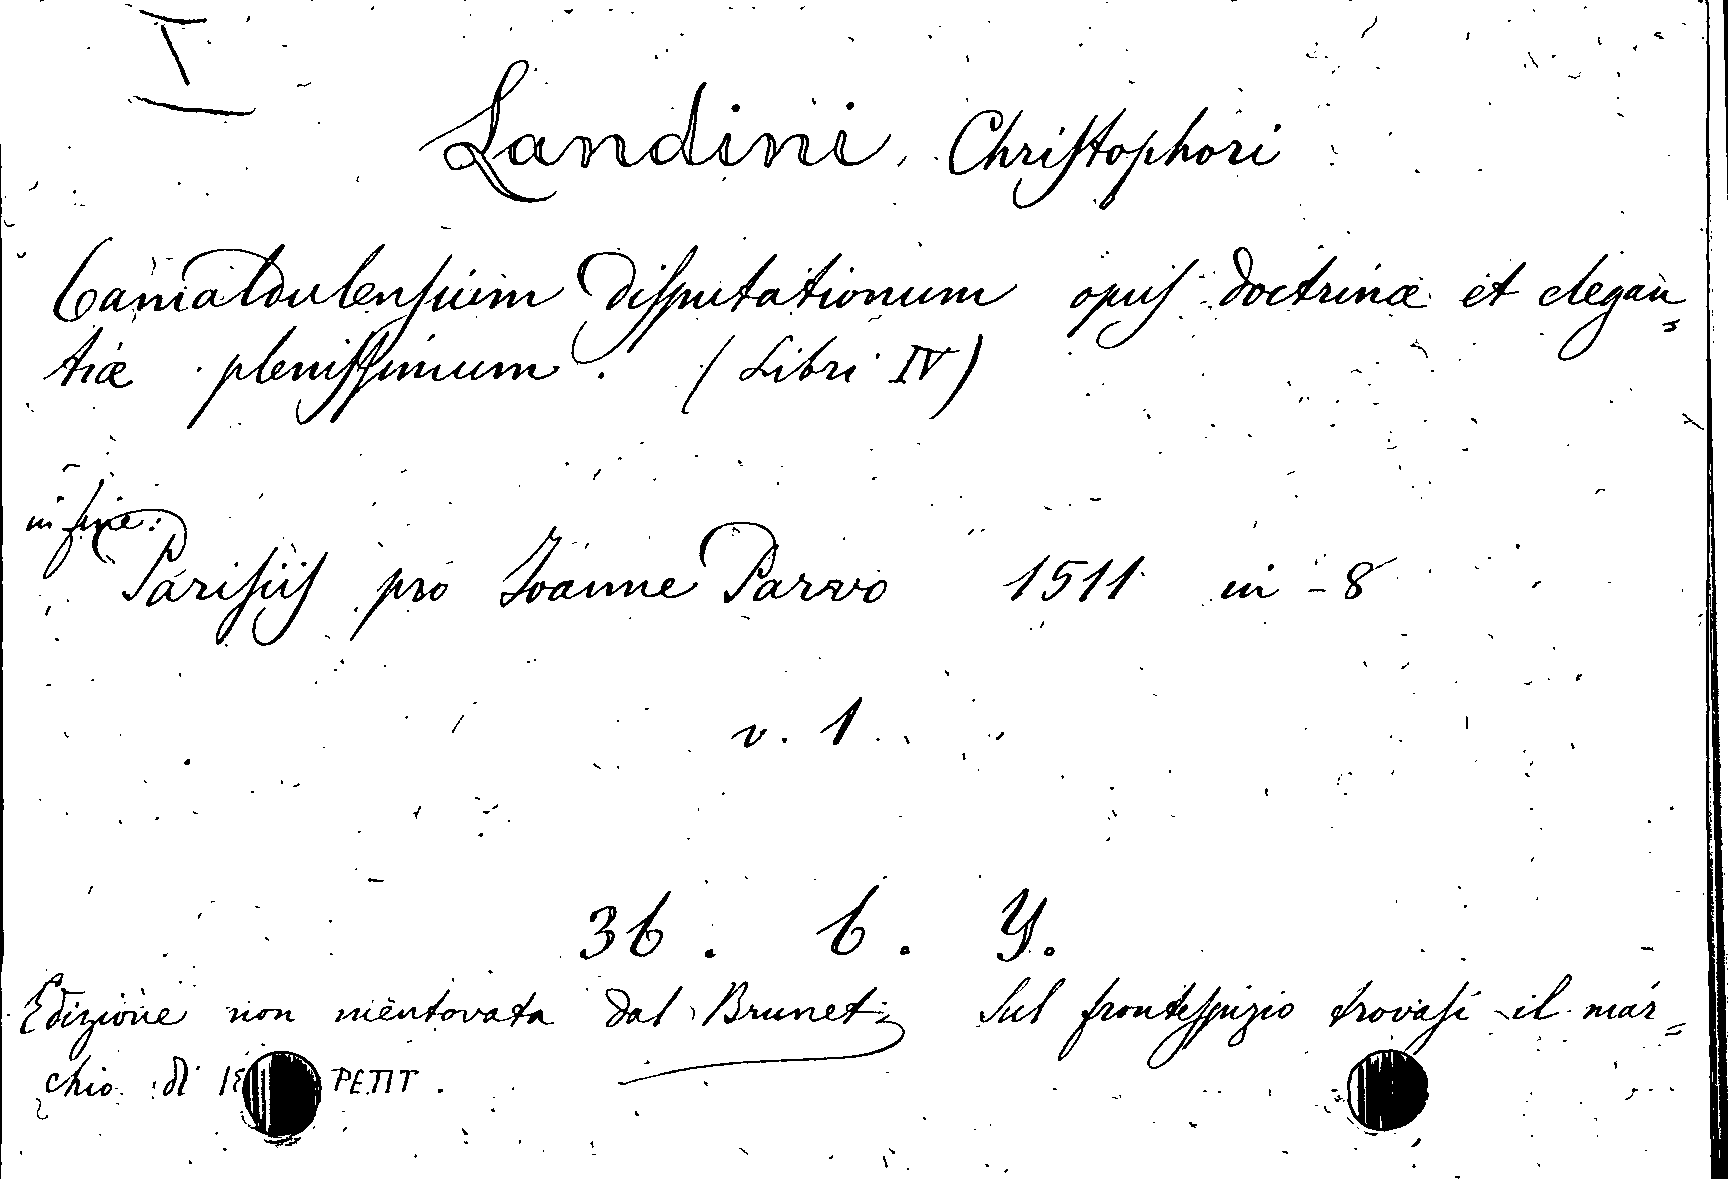 I
Landini, Christophori
Camaldulensium disputationum opus doctrinæ et elegan=
tiæ plenissimum. (Libri IV)
in fine:
Parisiis pro Joanne Parvo 1511 in-8
v. 1.
36. 6. Y.
Edizione non mentovata dal Brunet; sul frontespizio trovasi il mar=
chio di PETIT.